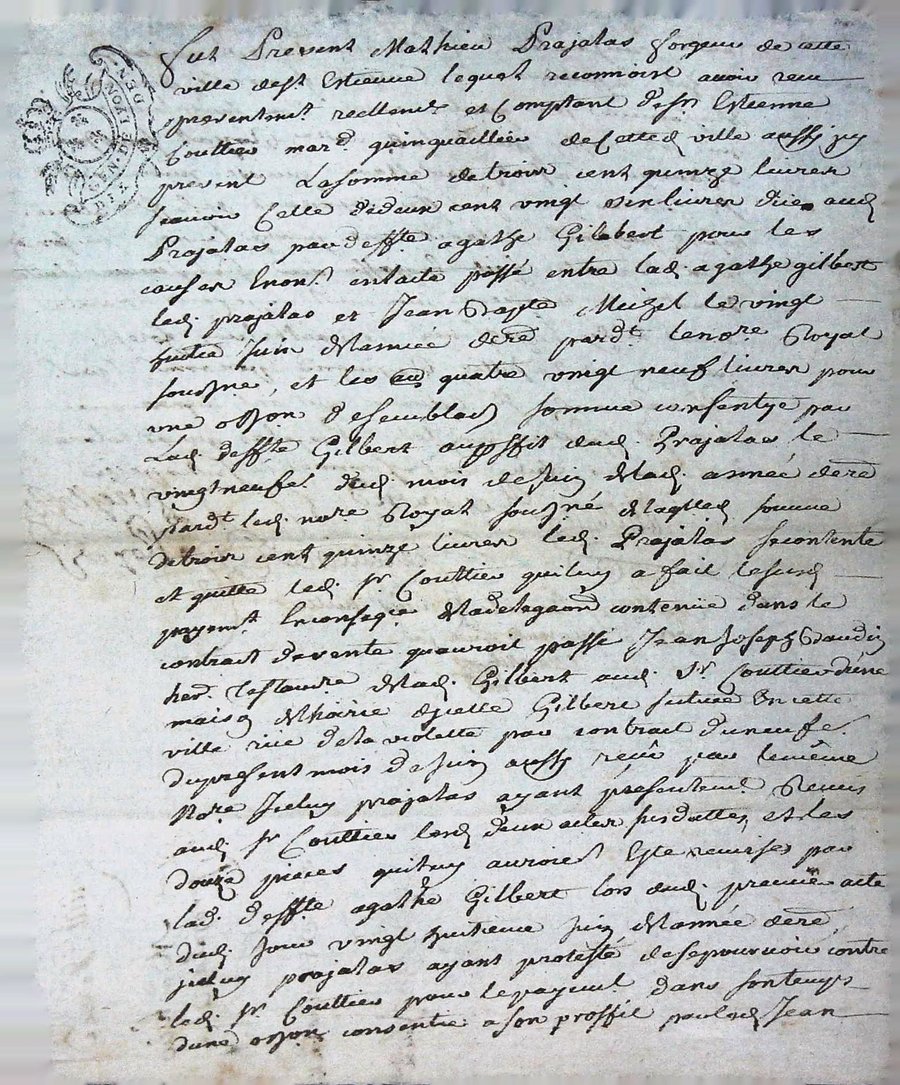 GEN. DE LION
DIX DEN
Fut Present Mathieu Prajalas forgeur de cette
ville de st Estienne lequel reconnoist avoir receu
presentemt reellemt et Comptant de sr Estienne
Couttier mard quinquaillier de Cette d ville aussy icy
present La somme de trois cent quinze livres
scavoir Celle de deux cent vingt six livres düe aud.
Prajalas par deffte agathe Gilbert pour les
causes Enon. en l'acte passé entre lad. agathe gilbert
led. prajalas et Jean Bapte Michel le vingt
huitie juin de l'année derē par dt le nore Royal
soussigné, et les quatre vingt neuf livres pour
une de semblable somme consentye par
Lad. deffte Gilbert au proffit dud. Prajalas le
vingt neufe dud. mois de juin de lad. année derē
pardt led. nore Royal soussigné de laqlle d. somme
de trois cent quinze livres led. Prajalas se contente
et quitte led. sr Couttier qui luy a fait le susd.
payemt En consequce de la contenüe dans le
contract de vente qu'auroit passé Jean Joseph Baudin
her. Testamre de lad. Gilbert aud. sr Couttier d'une
maison de l'hoirie d'icelle Gilbert scituée En cette
ville rüe de la violette par contract du neufe
du present mois de juin aussy receü par le même
Nore Iceluy prajalas ayant presentemt Remis
aud. sr Couttier lesd. deux actes susdattés, et les
douze pieces qui luy auroient Esté remises par
lad. deffte agathe Gilbert lors dud. premier acte
dud. jour vingt huitieme juin de l'année derē
iceluy prajalas ayant protesté de se pourvoir contre
led. sr Couttier pour le payemt dans son temps
d'une consentie a son proffit par led. Jean